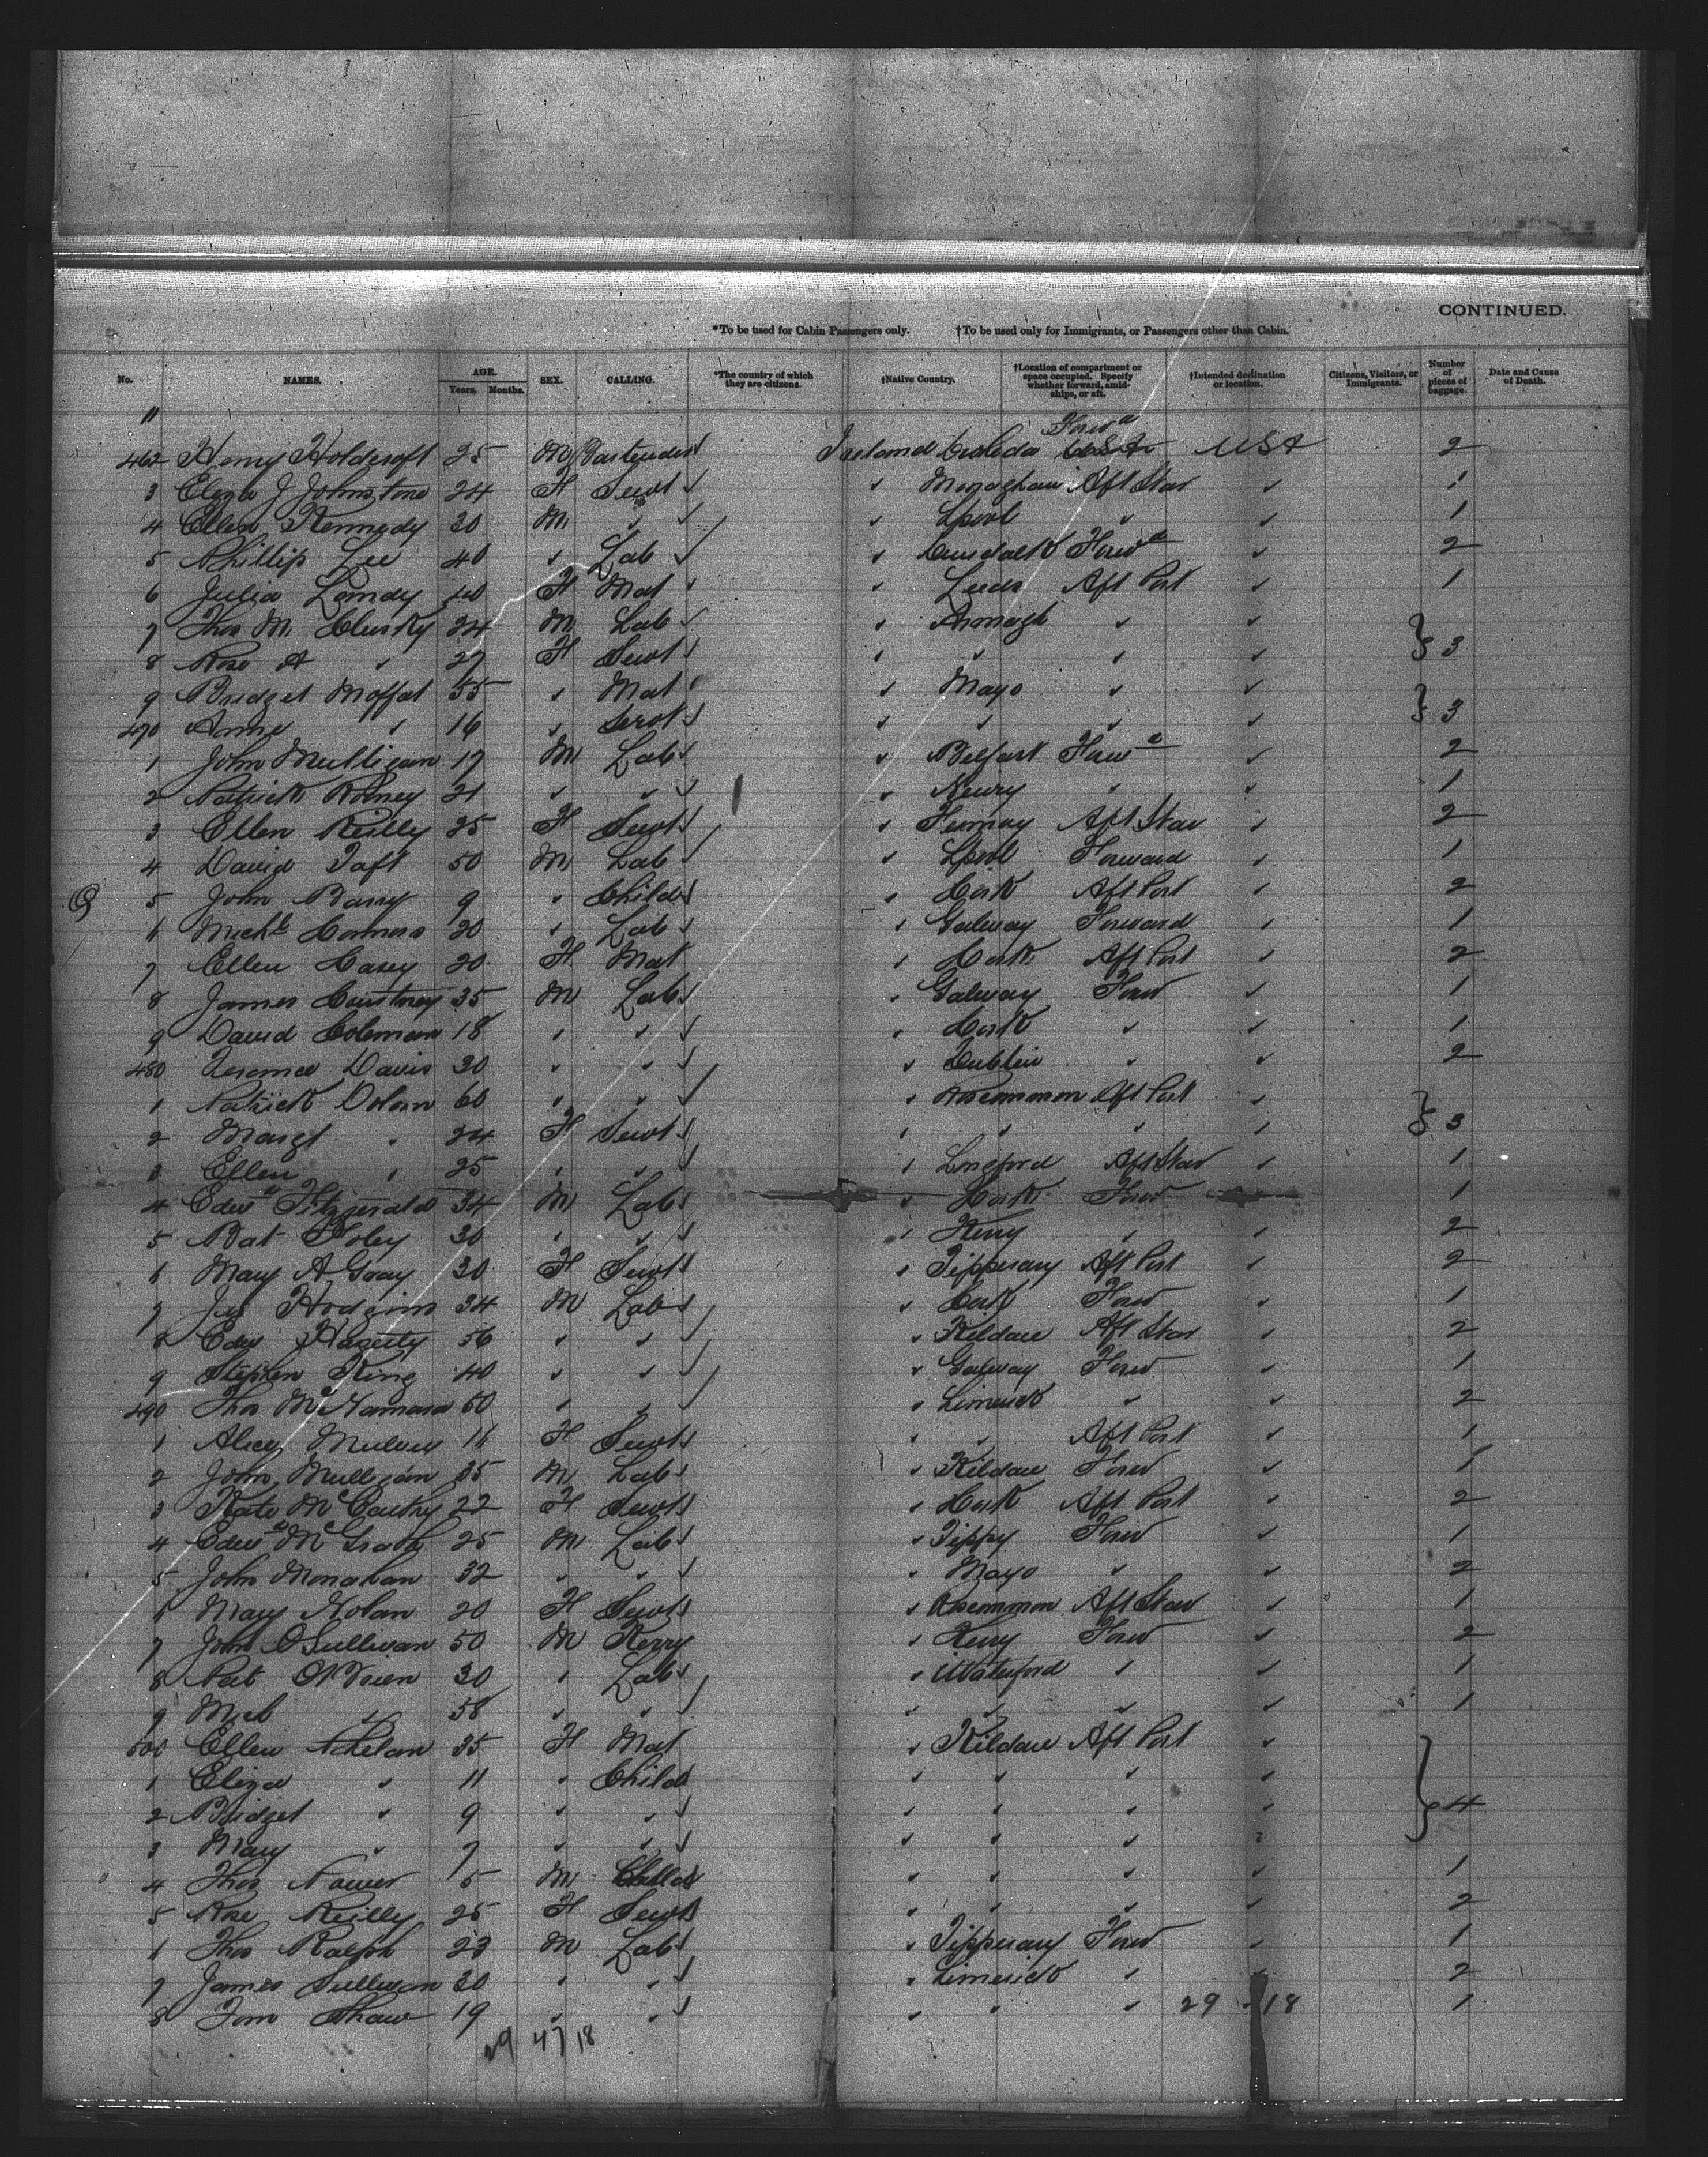 CONTINUED.
*To be used for Cabin Passengers only. †To be used only for Immigrants, or Passengers other than Cabin.
No. NAMES. AGE. Years. Months. SEX. CALLING. *The country of which they are citizens. †Native Country. †Location of compartment or space occupied. Specify whether forward, amidships, or aft. †Intended destination or location. Citizens, Visitors, or Immigrants. Number of pieces of baggage. Date and Cause of Death.
"
Forwd
462 Henry Holdcroft 25 M Ireland USA 2
3 Eliza J Johnstone 24 F Servt " Monaghan Aft Star " 1
4 Ellen Kennedy 30 M " " Lpool " " 1
5 Phillip Lee 40 " Lab " Dundalk Forwd " 2
6 Julia 40 F Mat " Leeds Aft Port " 1
7 Thos Mc Clusky 24 M Lab " Armagh " "
8 Rose A " 27 F Servt " " " " } 3
9 Bridget Moffat 55 " Mat " Mayo " "
470 Anne " 16 " Servt " " " " } 3
1 John Mulligan 17 M Lab " Belfast Forwd " 2
2 Patrick 21 " " " Newry " " 1
3 Ellen Reilly 25 F Servt " Aft Star " 2
4 David Taft 50 M Lab " Lpool Forward " 1
Q 5 John Barry 9 " Child " Cork Aft Port " 2
6 Michl Connors 20 " Lab " Galway Forward " 1
7 Ellen Casey 20 F Mat " Cork Aft Port " 2
8 James Courtney 35 M Lab " Galway Forw " 1
9 David Coleman 18 " " " Cork " " 1
480 Davis 30 " " " Dublin " " 2
1 Patrick Dolan 60 " " " Roscommon Aft Port "
2 Margt " 24 F Servt " " " " } 3
3 Ellen " 25 " " " Longford Aft Star " 1
4 Edwd Fitzgerald 34 M Lab " Cork Forw " 1
5 Pat Foley 30 " " " Kerry " " 2
6 Mary A Gray 30 F Servt " Tipperary Aft Port " 2
7 Hodgins 34 M Lab " Cork Forw " 1
8 56 " " " Kildare Aft Star " 2
9 Stephen King 40 " " " Galway Forw " 1
490 Thos McNamara 50 " " " Limerick " " 2
1 Alicy 16 F Servt " " Aft Port " 1
2 John Mulligan 35 M Lab " Kildare Forw " 1
3 Kate McCarthy 22 F Servt " Cork Aft Port " 2
4 Edwd McGrath 25 M Lab " Tippy Forw " 1
5 John Monahan 32 " " " Mayo " " 2
6 Mary Nolan 20 F Servt " Roscommon Aft Star " 1
7 John OSullivan 50 M Kerry " Kerry Forw " 2
8 Pat OBrien 30 " Lab " Waterford " " 1
9 " 58 " " " " " " 1
500 Ellen Phelan 35 F Mat " Kildare Aft Port "
1 Eliza " 11 " Child " " " "
2 Bridget " 9 " " " " " " } 4
3 Mary " 7 " " " " " "
4 Thos Power 5 M " " " " 1
5 Rose Reilly 25 F Servt " " " " 2
6 Thos Ralph 23 M Lab " Tipperary Forw " 1
7 James Sullivan 30 " " " Limerick " " 2
8 Tom Shaw 19 " " " " " 29 - 18 1
29 47 18